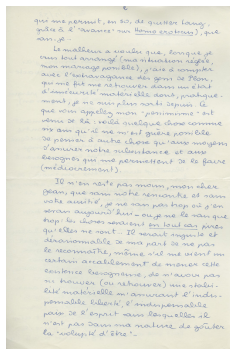 2
qui me permit, en 50, de quitter Lang,
grâce à l'"avance" sur Homo eroticus), que
sais-je.
Le malheur a voulu que, lorsque je
eus tout arrangé (ma situation réglée,
mon mariage possible), j'aie à compter
avec l'extravagance des gens de Plon,
qui me fit me retrouver dans un état
d'insécurité matérielle dont, pratique-
ment, je ne suis plus sorti depuis. Ce
que vous appelez mon "pessimisme" est
venu de là : voilà quelque chose comme
six ans qu'il ne m'est guère possible
de penser à autre chose qu'aux moyens
d'assurer notre subsistance et aux
besognes qui me permettent de le faire
(médiocrement).
Il n'en reste pas moins, mon cher
Jean, que sans notre rencontre et sans
votre amitié, je ne sais pas trop où j'en
serais aujourd'hui — ou je ne le sais que
trop. Les choses seraient en tout cas pires
qu'elles ne sont. Il serait injuste et
déraisonnable de ma part de ne pas
le reconnaître, même s'il me vient un
certain accablement de mener cette
existence besogneuse, de n'avoir pas
su trouver (ou retrouver) une stabi-
lité matérielle m'assurant l'indis-
pensable liberté, l'indispensable
paix de l'esprit sans lesquelles il
n'est pas dans ma nature de goûter
la "volupté d'être".